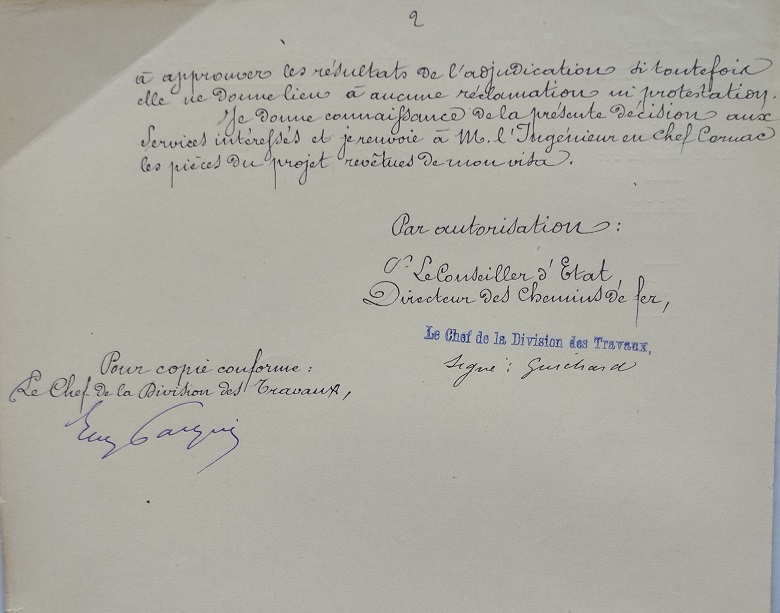 2
à approuver les résultats de l'adjudication si toutefois
elle ne donne lieu à aucune réclamation ni protestation.
Je donne connaissance de la présente décision aux
Services intéressés et je renvoie à M. l'Ingénieur en Chef Cornac
les pièces du projet revêtues de mon visa.
Par autorisation :
Pr Le Conseiller d'Etat,
Directeur des Chemins de fer,
Le Chef de la Division des Travaux,
Signé : Guichard
Pour copie conforme :
Le Chef de la Division des Travaux,